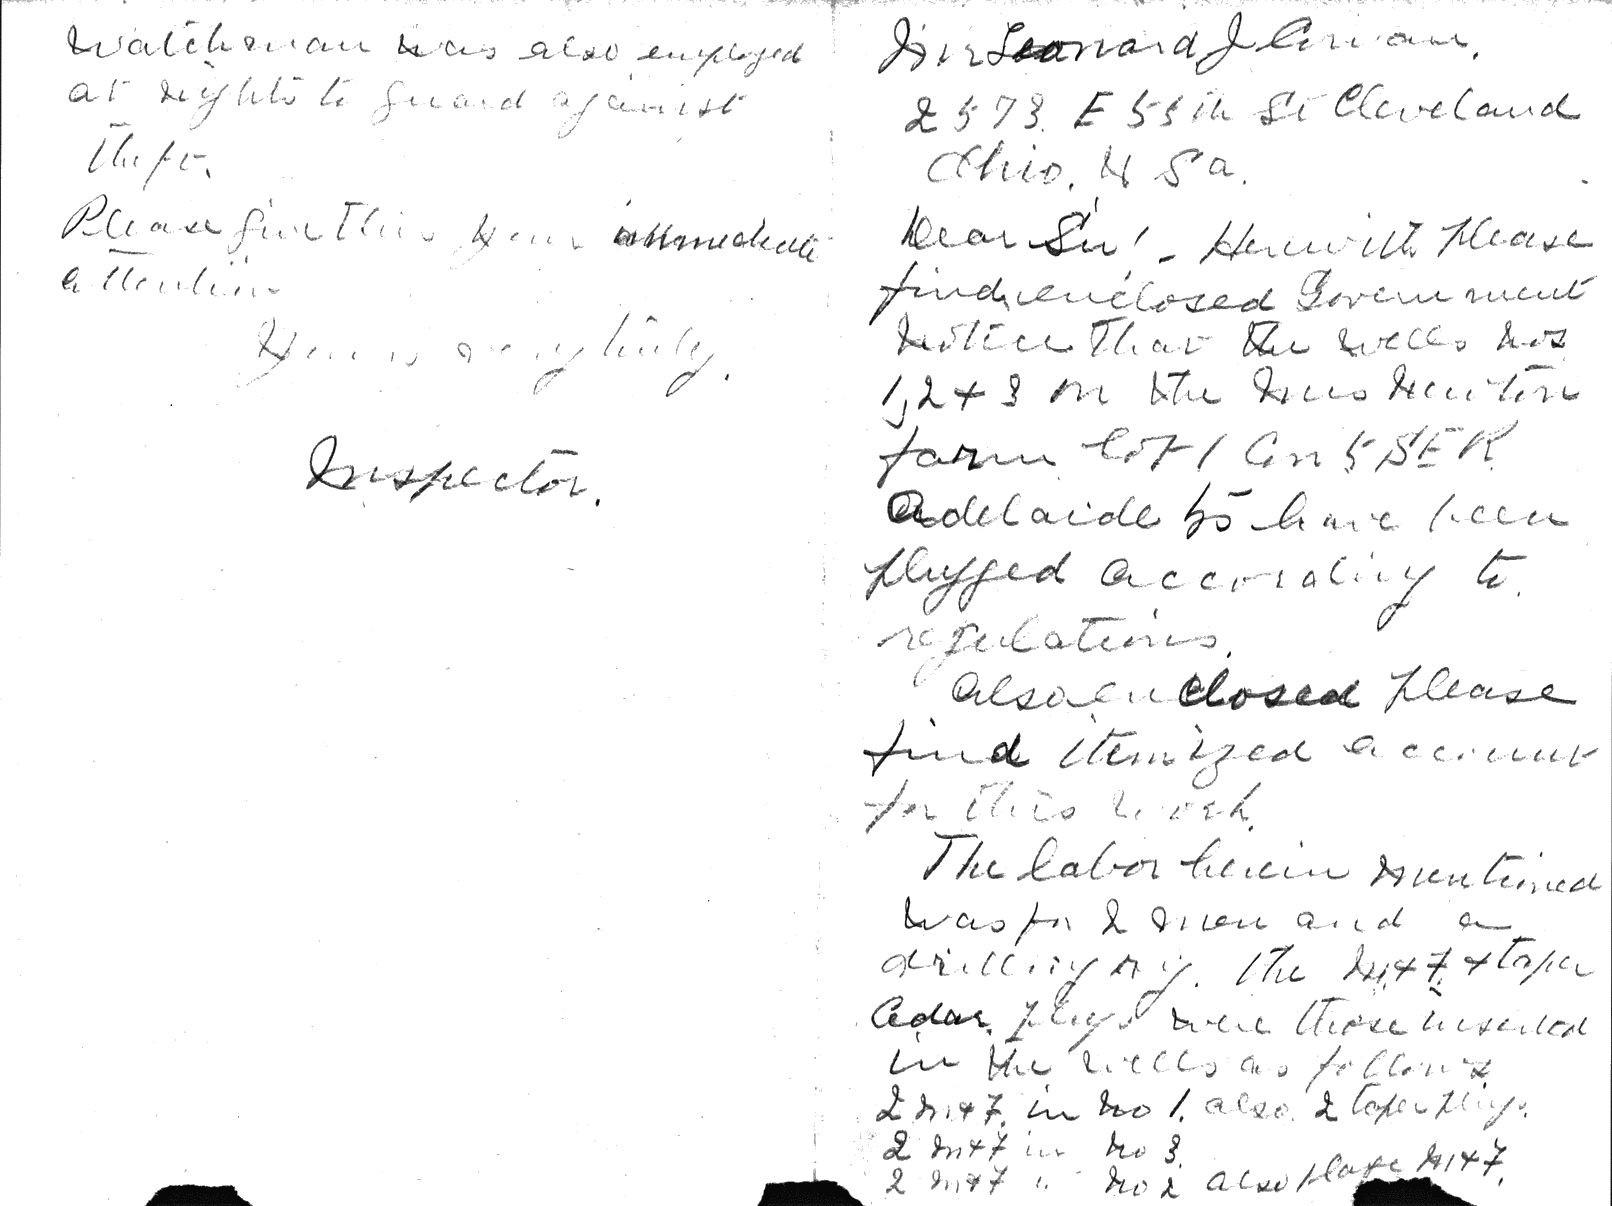 Mr Leonard J
2573 E 55th St Cleveland
Ohio. U S a.
Dear Sir! - Herewith please
find enclosed Government
notice that the wells nos
1, 2 + 3 on the Newton
farm Lot 1 Con 5 S E R
Adelaide to have been
plugged according to
regulations.
Also enclosed please
find itemized account
for this work.
The labor herein mentioned
was for 2 men and a
drilling rig. The M+7 + taper
Cedar plugs were those inserted
in the wells as follows
2 M+7. in No 1. also 2 taper plugs.
2 M+7 in No 3.
2 M+7 " No 2 also M+7.
Watchman was also employed
at nights to guard against
theft.
Please give this your immediate
attention
Yours very truly.
Inspector.